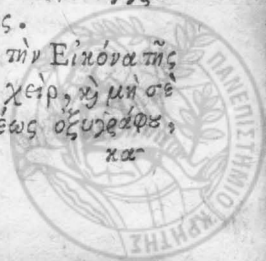 ς.
τὴν Εἰκόνα τῆς
χεὶρ, ϗ μὴ σὲ
έως ὀξυγράφȣ,
κα-
ΠΑΝΕΠΙΣΤΗΜΙΟ ΚΡΗΤΗΣ